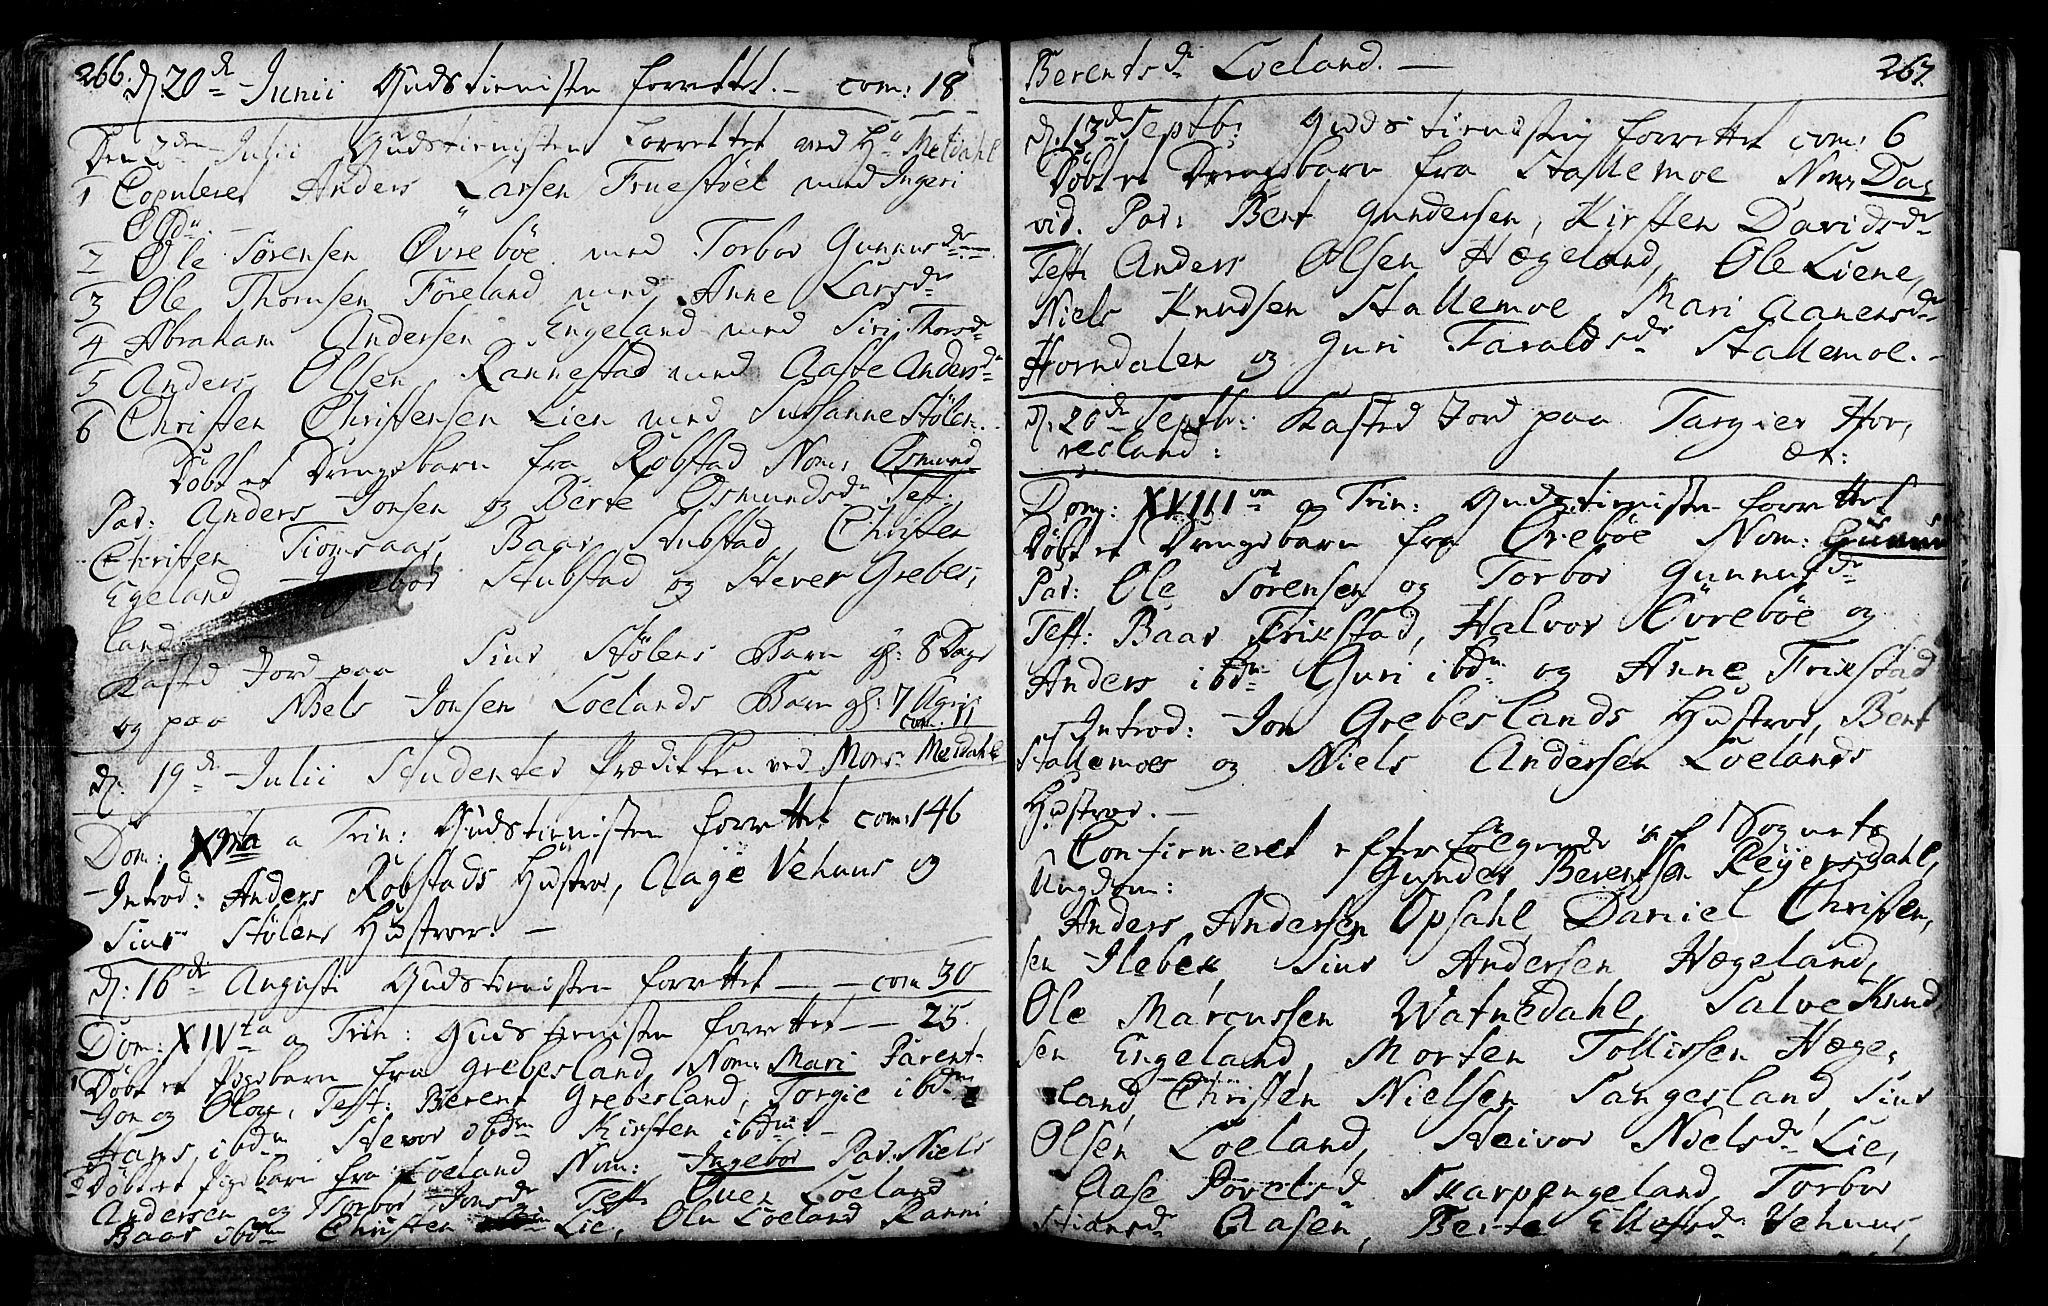 266.
d: 20de Junii Gudstienisten forrettet. — com: 18
Den 2den Julii Gudstienisten forrettet ved Hr Meldahl
1 Copuleret Anders Larsen Fruestöel med Ingeri
Olsdr.
2 Ole Sörensen Övreböe med Torbor Gunnusdr
3 Ole Thomsen Föreland med Anne Larsdr
4 Abraham Andersen Engeland med Siri Thorsdr
5 Anders Olsen Rannestad med Aaste Andersdr
6 Christen Christensen Lien med Sussanne Stölen.
Döbt et Drengebarn fra Röbstad Nom: Osmund
Par: Anders Jonsen og Berte Osmundsdr Test:
Christen Tiomsaas, Baar Stubstad, Christen
Egeland, Ingebor Stubstad og Stever Grebes,
land.
Kasted Jord paa Siur Stölens Barn gl: 8 Dage
og paa Niels Jonsen Loelands Barn gl: 7 Uger
com: 11
d: 19de Julii Studenter Prædikken ved Mons: Meldahl
Dom: a Trin: Gudstienisten forrettet com: 146
Introd: Anders Röbstads Hustroe, Aage Vehuus og
Siur Stölens Hustroer. —
d: 16de Augusti Gudstienisten forrettet — — com 30
Dom: XIVta a Trin: Gudstienisten forrettet — — 25.
1 Döbt et Pigebarn fra Grebesland, Nom: Mari Parent-
Jon og Olou, Test: Berent Grebesland, Torgie ibdm
Hans ibdm Stevor ibdm Kirsten ibdm —
2 Döbt et Pigebarn fra Loeland Nom: Ingebor Par: Niels
Andersen og Torbor Jonsdr Test: Ouen Loeland
Baar ibdm Christen Lie, Ole Loeland Ranni
267.
Berentsdr Loeland. —
d: 13de Septb: Gudstienisten forrettet com: 6
Döbt et Drengebarn fra Stallemoe Nom: Da,
vid. Par: Bent Gundersen, Kirsten Davidsdr
Test: Anders Olsen Hægeland, Ole Liene,
Niels Knudsen Stallemoe, Mari Aanensdr
Horndalen og Guri Faraldsdr Stallemoe. —
d: 20de Septbr: Kasted Jord paa Targier Hor,
reland: æt:
Dom: XVIIIva a Trin: Gudstienisten forrettet
Döbt et Drengebarn fra Öreböe Nom: Gunnu
Par: Ole Sörensen og Torbor Gunnusdr
Test: Baar Frikstad, Halvor Övreböe og
Anders ibdm Guri ibdm og Anne Frikstad
Introd: Jon Grebeslands Hustroe, Bent
Stallemoes og Niels Andersen Loelands
Hustroe. —
Confirmeret efterfölgende af Sognets
Ungdom: Gunder Berentsen Reyersdahl,
Anders Andersen Opsahl, Daniel Christen,
sen Ilebek, Siur Andersen Hægeland,
Ole Marcussen Watnedahl, Salve Knud
sen Engeland, Morten Tollissen Hæge,
land, Christen Nielsen Sangesland, Siur
Olsen Loeland, Steivor Nielsdr Lie,
Aase Povelsd Skarpengeland, Torbor
Stiansdr Aasen, Berte Ellefsdr Vehuus,